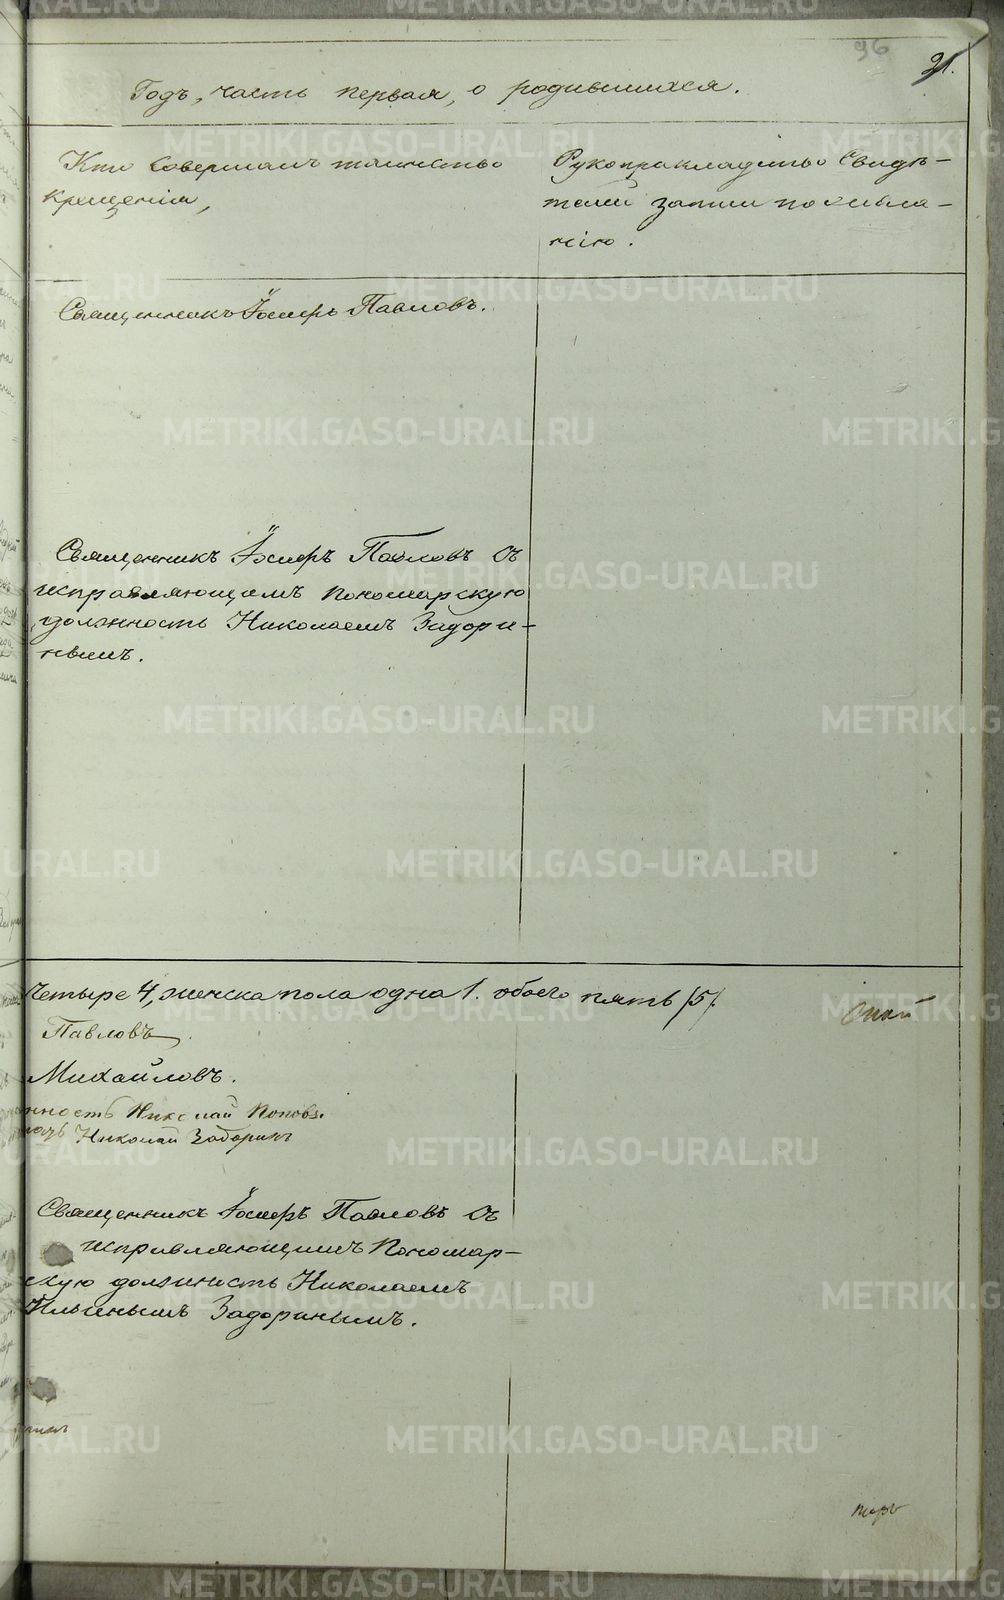 96
21.
Годъ, часть первая, о родившихся.
Кто совершалъ таинство
крещенія,
Рукоприкладство свидѣ-
телей записи по жела-
нію.
Священникъ Іосифъ Павловъ.
Священникъ Іосифъ Павловъ съ
исправляющимъ пономарскую
должность Николаемъ Задори-
нымъ.
Четыре 4, женска пола одна 1. обоего пять /5/.
Павловъ
Михайловъ.
нность Николай Поповъ.
Николай Задоринъ
Священникъ Іосифъ Павловъ съ
исправляющимъ пономар-
скую должность Николаемъ
Ильинымъ Задоринымъ.
METRIKI.GASO-URAL.RU